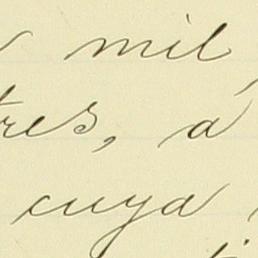 mil
tres, a
cuya